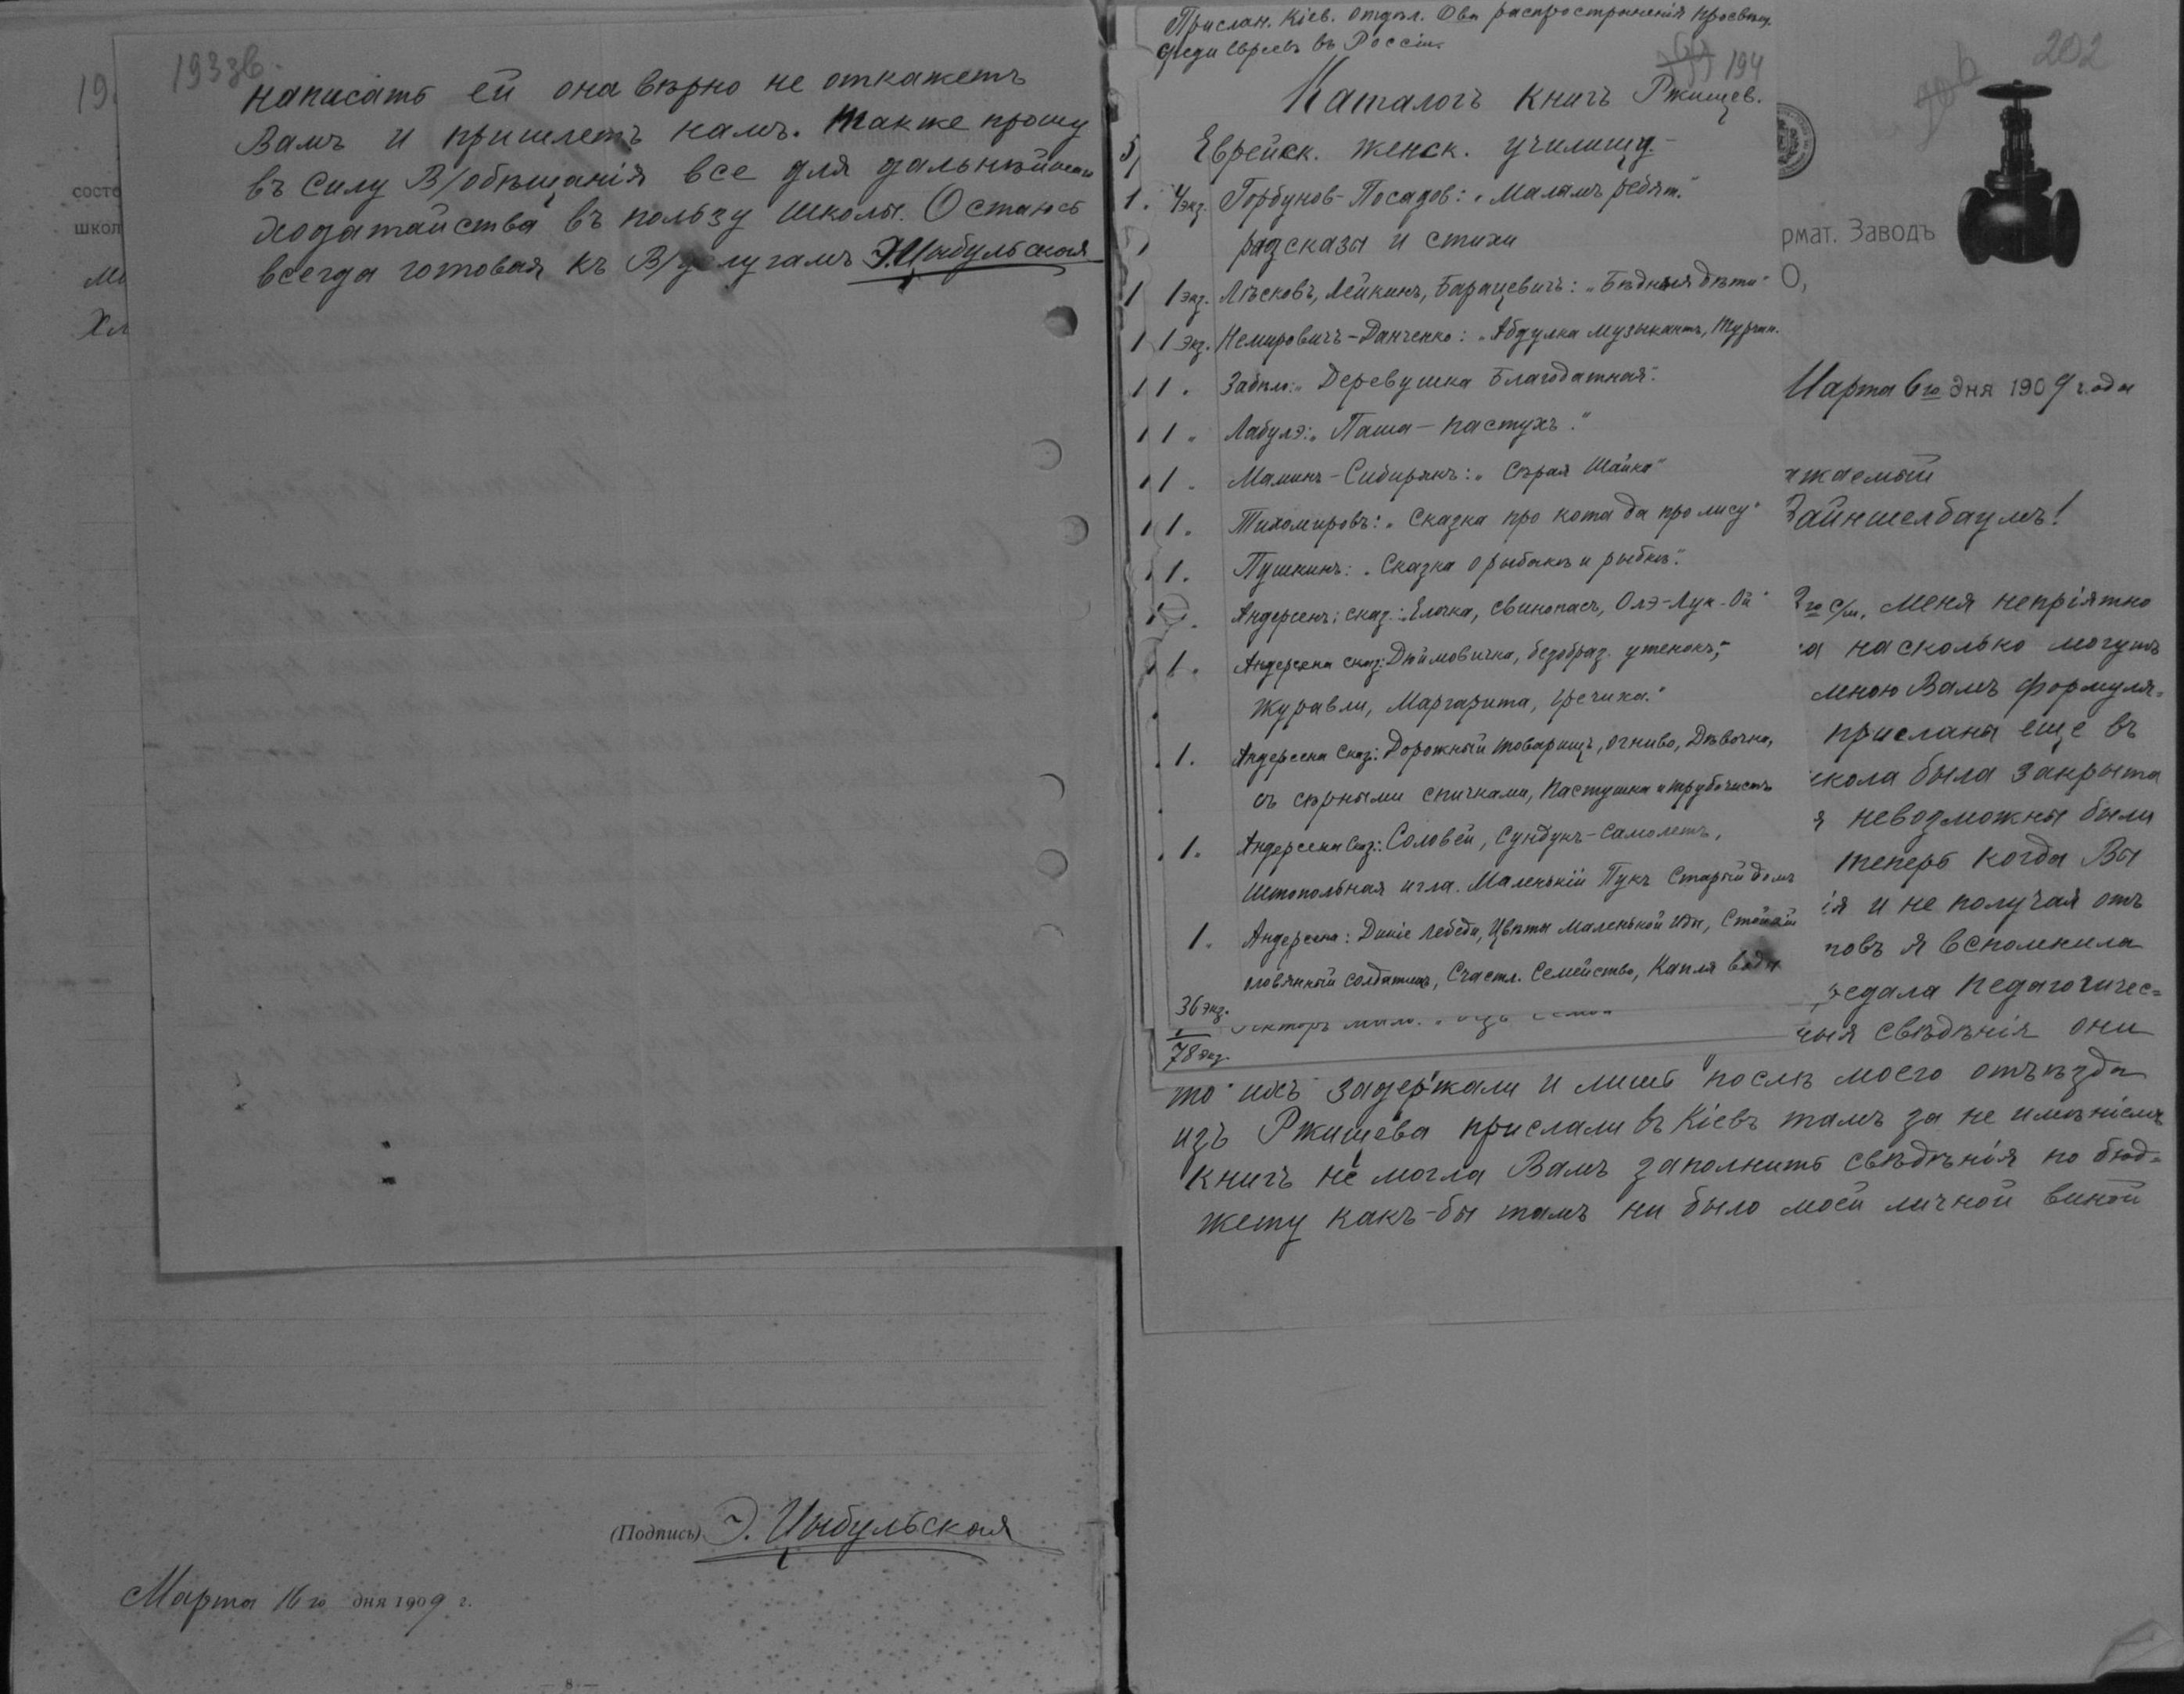 193зв.
написать ей она вѣрно не откажетъ
Вамъ и пришлетъ намъ. Также прошу
въ силу В/обѣщанія все для дальнѣйшаго
ходатайства въ пользу школы. Остаюсь
всегда готовая къ В/услугамъ Э. Цыбульская
19
состо
школ
Хл
(Подпись) Э. Цыбульская
Марта 16го дня 1909 г.
— 8 —
Прислан. Кіев. отдѣл. Ова распространенія просвѣщ.
среди евреевъ въ Россіи.
194
Каталогъ книгъ Ржищев.
Еврейск. женск. училищу.
1. 4 экз. Горбунов-Посадов: „Малымъ ребят."
разсказы и стихи
1 1 экз. Лѣсковъ, Лейкинъ, Баранцевичъ: „Бѣдныя дѣти"
1 1 экз. Немировичъ-Данченко: „Абдулка музыкантъ,
1 1. „Деревушка Благодатная".
1 1 „ Лабулэ: „Паша-пастухъ."
1 1. Маминъ-Сибирякъ: „Сѣрая Шейка"
1 1. Тихомировъ: „Сказка про кота да про лису"
1. Пушкинъ: „Сказка о рыбакѣ и рыбкѣ".
Андерсенъ: сказ.: Елочка, свинопасъ, Олэ-Лук-Ой"
1. Андерсена сказ: Дюймовичка, безобраз. утенокъ,
журавли, Маргарита, гречиха."
1. Андерсена сказ: Дорожный товарищъ, огниво, Дѣвочка,
съ сѣрными спичками, Пастушка и трубочистъ
1. Андерсена сказ: Соловей, Сундукъ-самолетъ,
Штопольная игла. Маленькій Тукъ Старый домъ
1. Андерсена: Дикіе лебеди, Цвѣты маленькой Иды, Стойкій
оловянный солдатикъ, Счастл. семейство, Капля воды
36 экз.
78 экз.
202
рмат. Заводъ
О,
Марта 6го дня 1909 года
жаемый
Зайншелбаумъ!
го с/м. меня непріятно
а насколько могутъ
мною Вамъ формуля-
прислана еще въ
школа была закрыта
я невозможны были
теперь когда Вы
ія и не получая отъ
повъ я вспомнила
редала педагогичес-
ныя свѣдѣнія они
то ихъ задержали и лишь послѣ моего отъѣзда
изъ Ржищева прислали въ Кіевъ тамъ за не имѣніемъ
книгъ не могла Вамъ заполнить свѣдѣнія по бюд-
жету какъ-бы тамъ ни было моей личной виной